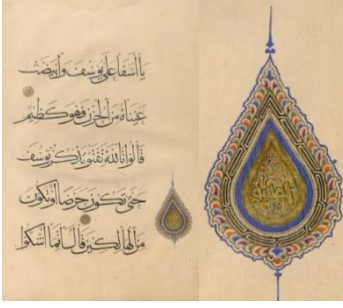 يَا أَسَفَا عَلَى يُوسُفَ وَابْيَضَّتْ
عَيْنَاهُ مِنَ الْحُزْنِ فَهُوَ كَظِيمٌ
قَالُوا تَاللَّهِ تَفْتَؤُ تَذْكُرُ يُوسُفَ
حَتَّى تَكُونَ حَرَضًا أَوْ تَكُونَ
مِنَ الْهَالِكِينَ قَالَ إِنَّمَا أَشْكُوا